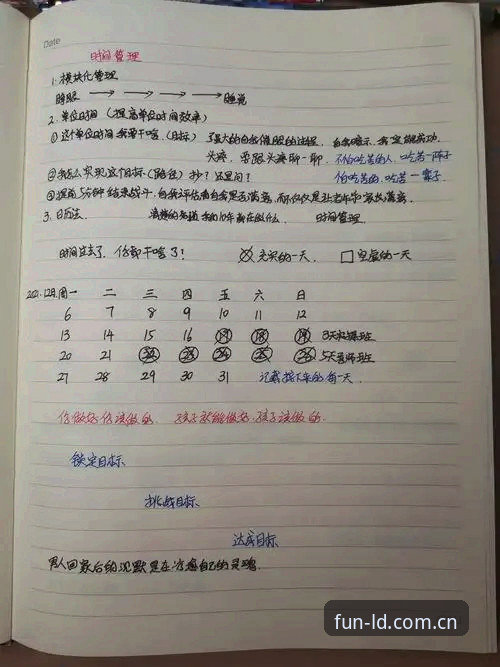 Date
时间管理
1. 模块化管理
睁眼 → → → 睡觉
2. 单位时间 (提高单位时间效率)
① 这个单位时间我要干啥.(目标) 了强大的自我催眠的过程, 自我暗示, 我定能成功.
头疼, 要跟头疼聊一聊, 不怕吃苦的人, 吃苦一阵子
② 我怎么实现这个目标.(路径) 抄? 还是问? 怕吃苦的, 吃苦一辈子
③ 提前5分钟结束战斗, 自我评估
3. 日历法. 清楚的知道 我的10年都在做什么. 时间管理.
时间过去了. 你都干啥了? 充实的一天. 空虚的一天
2021.12月.周一 二 三 四 五 六 日
6 7 8 9 10 11 12
13 14 15 16 17 18 19 3天
20 21 22 23 24 25 26 5天
27 28 29 30 31 记载接下来的每一天.
你做好你该做的. 孩子就能做好孩子该做的.
锁定目标
挑战目标
达成目标
男人回家后的沉默是在治愈自己的灵魂
fun-ld.com.cn